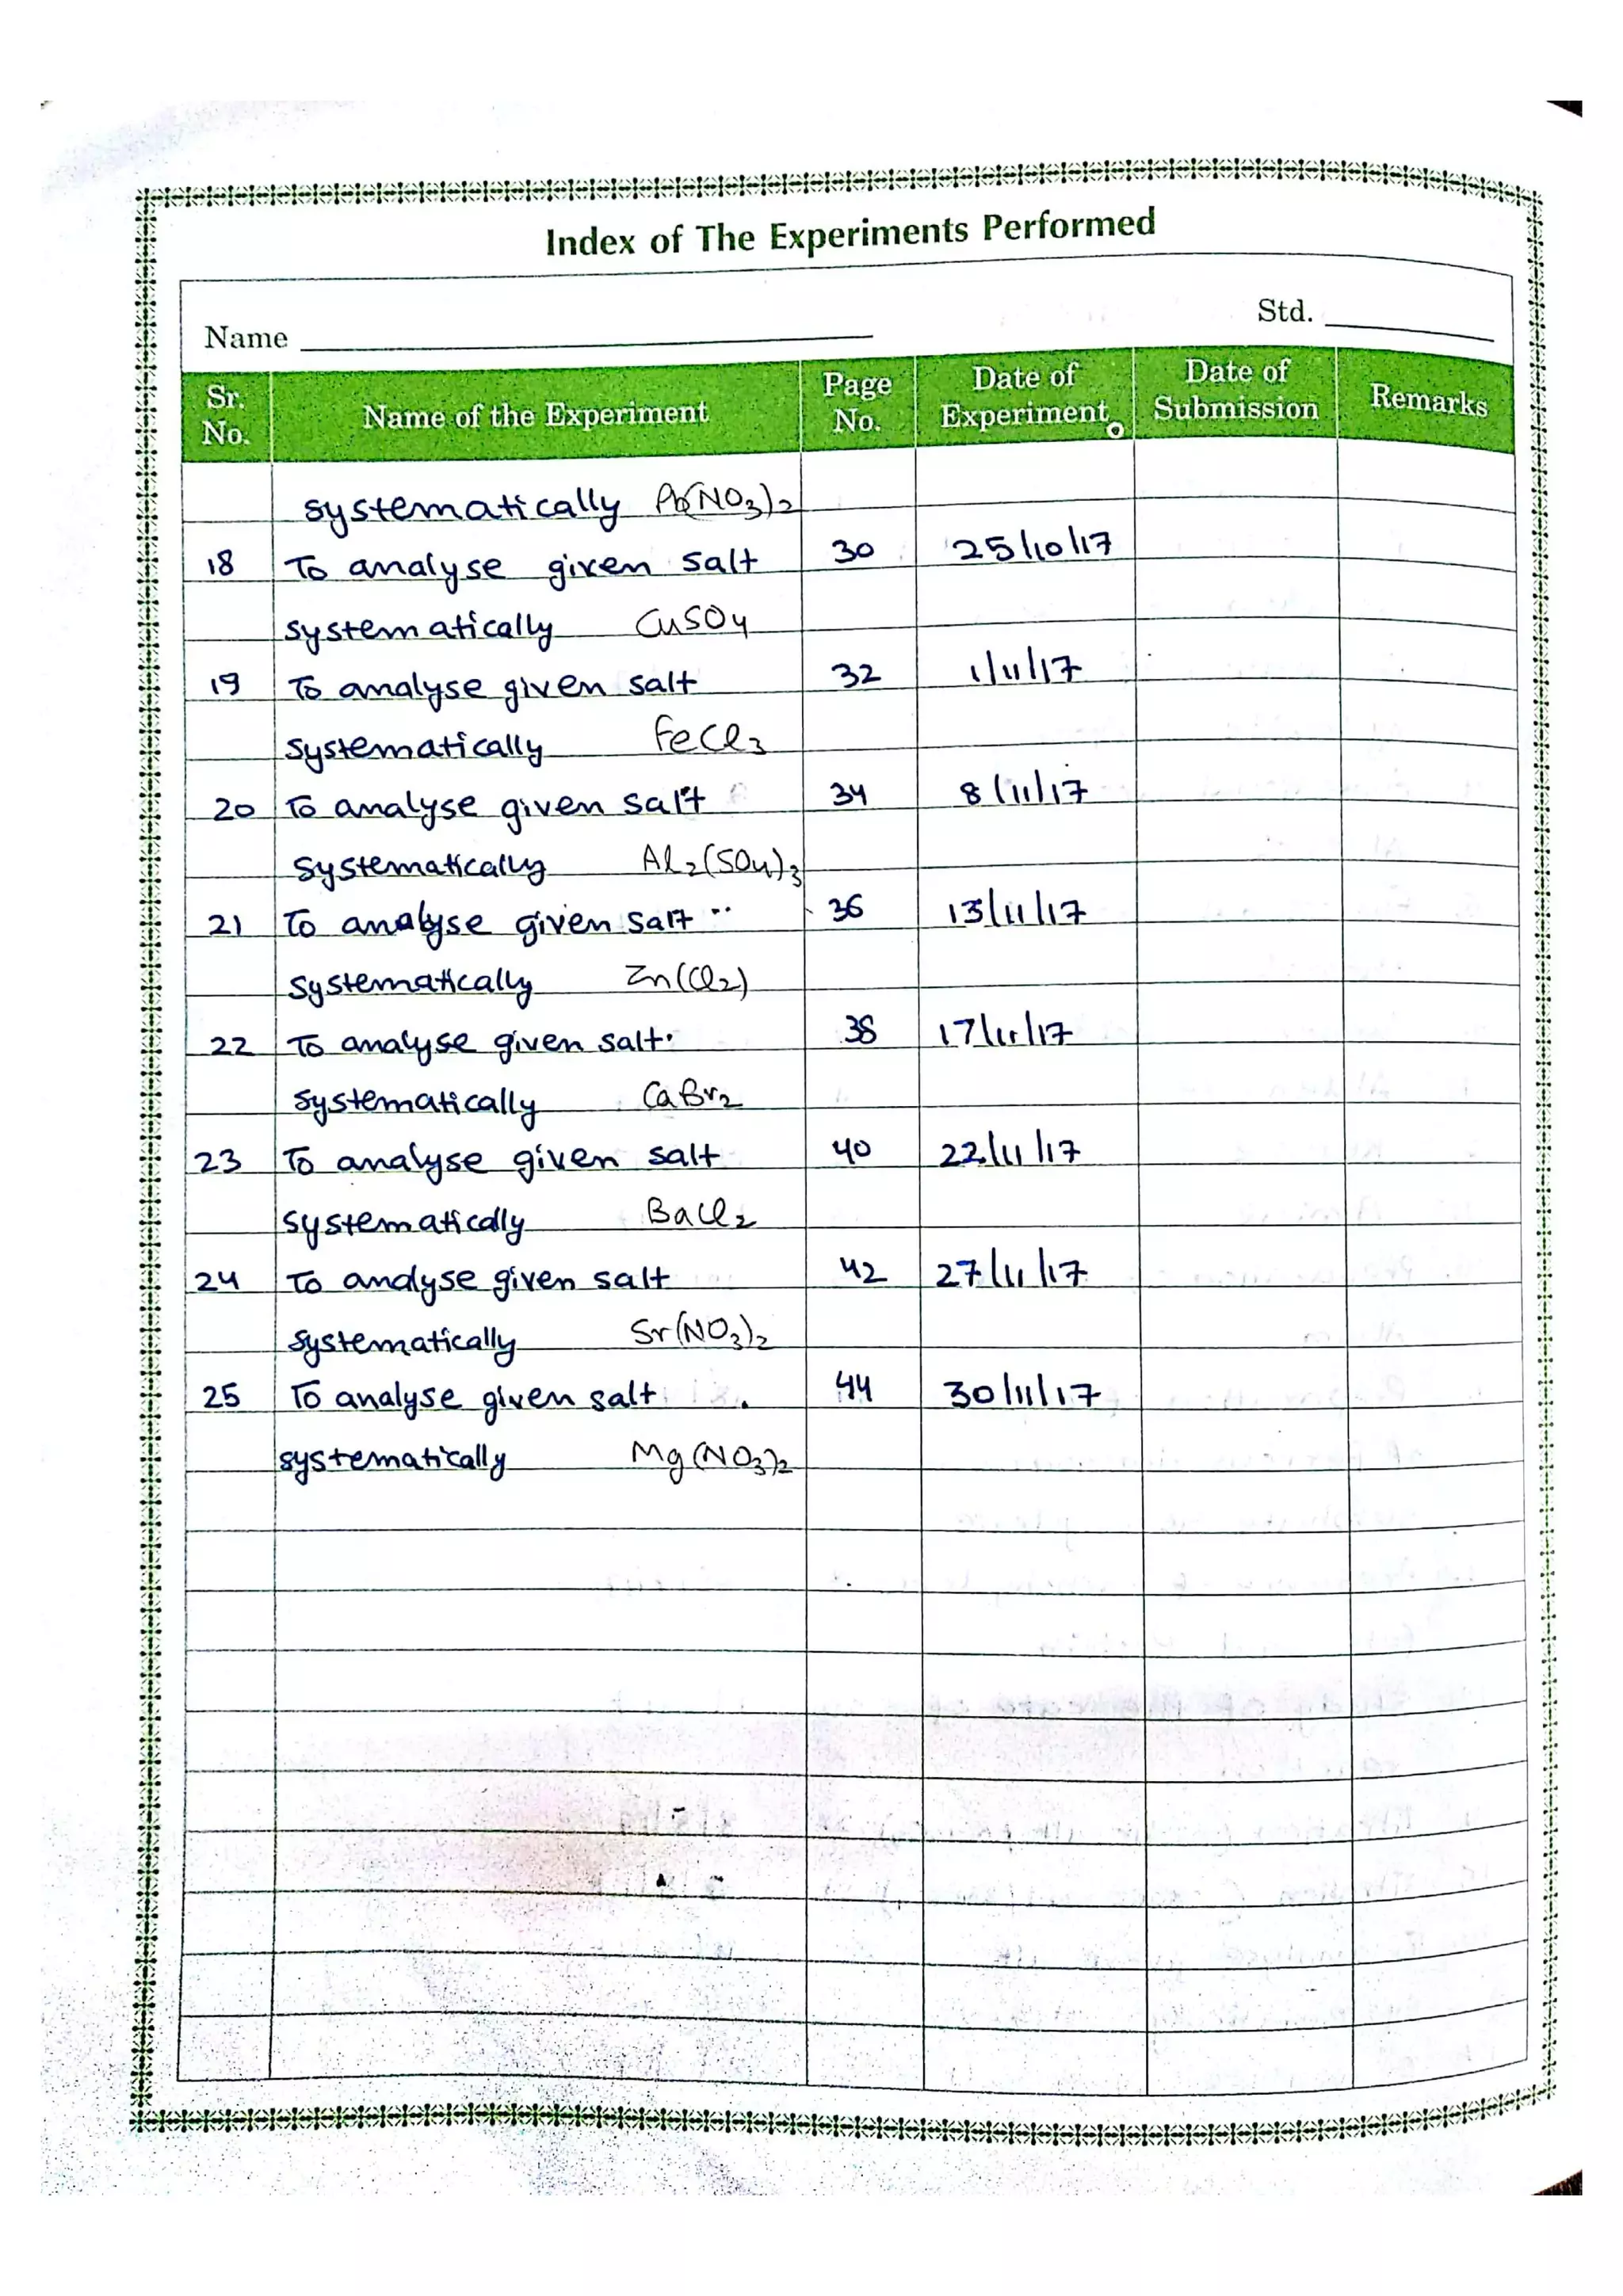 Index of The Experiments Performed
Name Std.
Sr. No. Name of the Experiment Page No. Date of Experiment Date of Submission Remarks
systematically Pb(NO3)2
18 To analyse given salt 30 25/10/17
systematically CuSO4
19 To analyse given salt 32 1/11/17
systematically FeCl3
20 To analyse given salt 34 8/11/17
systematically Al2(SO4)3
21 To analyse given salt 36 13/11/17
systematically Zn(Cl2)
22 To analyse given salt 38 17/11/17
systematically CaBr2
23 To analyse given salt 40 22/11/17
systematically BaCl2
24 To analyse given salt 42 27/11/17
systematically Sr(NO3)2
25 To analyse given salt 44 30/11/17
systematically Mg(NO3)2